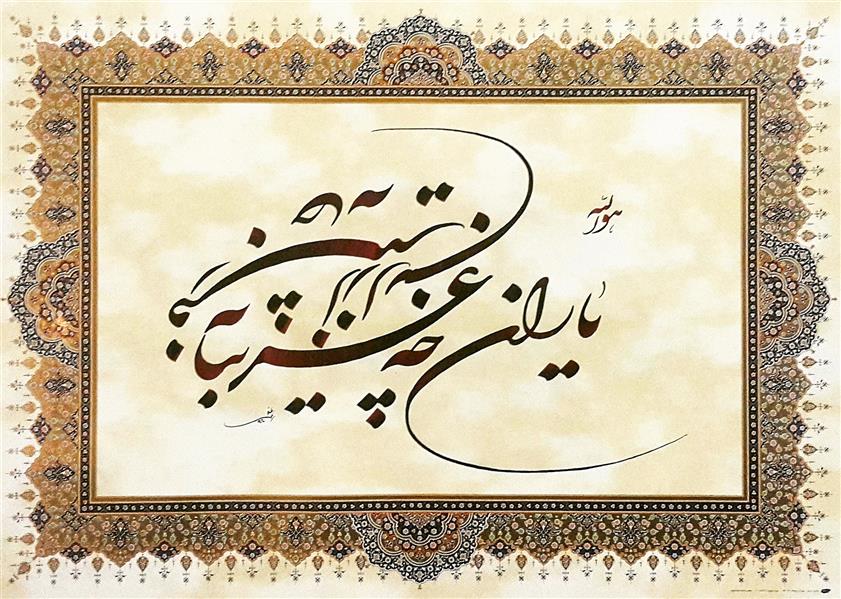 هوالله
یاران چه غریبانه
رفتند از این خانه